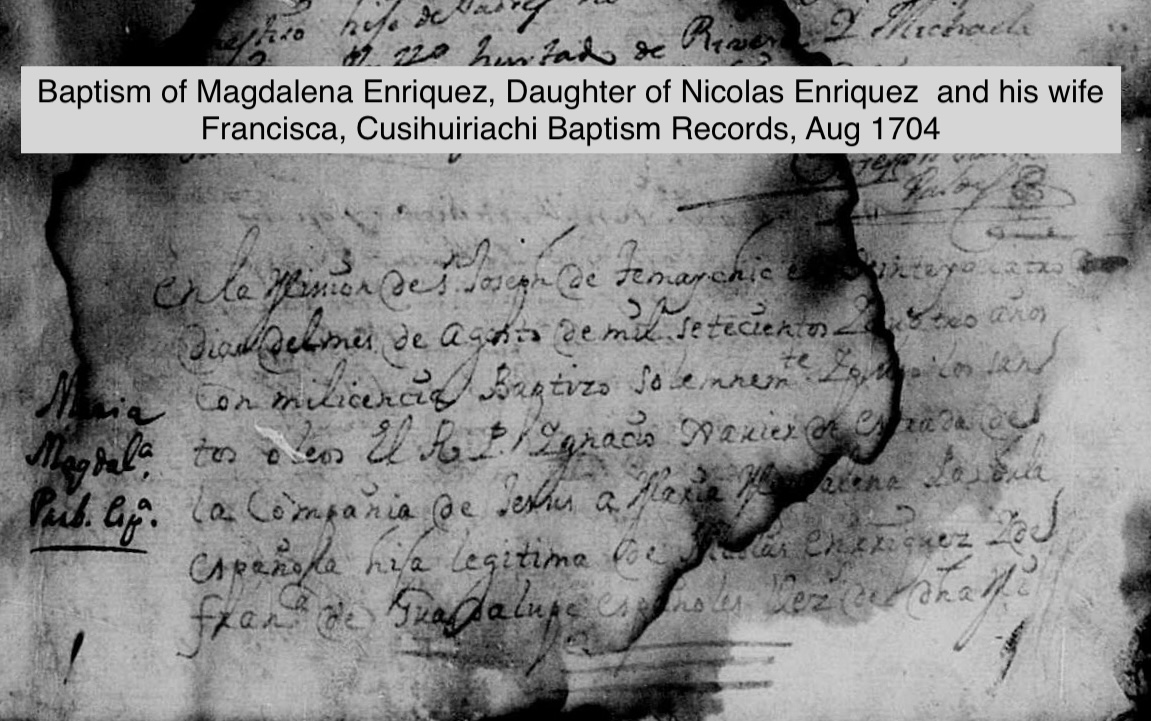 hijo de Padres no
hurtado de Rivera D Michaela
Baptism of Magdalena Enriquez, Daughter of Nicolas Enriquez and his wife
Francisca, Cusihuiriachi Baptism Records, Aug 1704
En la Mision de S. Joseph de Temaychic en Veinte y quatro
dias del mes de Agosto de mil setecientos Y quatro años
Con mi licencia Baptizo Solemnemte Y puso los san
tos oleos El R P. Ygnacio Xavier de Estrada de
la Compañia de Jesus a Maria Magdalena Parbula
Española hija legitima de Nicolas Enrriquez Y de
franca de Guadalupe españoles Vez de dha
Maria
Magdala.
Parb. Espa.